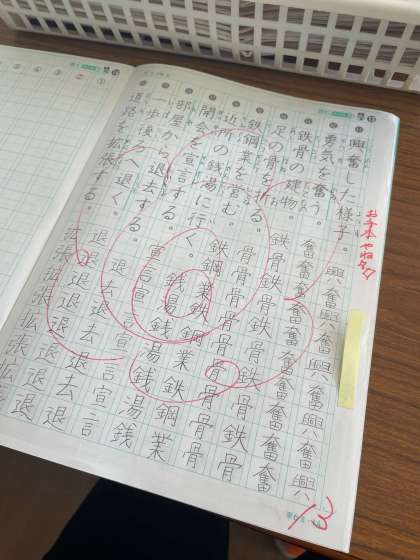 お手本やね
興奮した様子。興奮興奮興奮興
勇気を奮う。奮奮奮奮奮奮奮奮
鉄骨の建物。鉄骨鉄骨鉄骨鉄骨
足の骨を折る。骨骨骨骨骨骨骨
鉄鋼業を営む。鉄鋼業鉄鋼業
近所の銭湯に行く。銭湯銭湯銭
開会を宣言する。宣言宣言宣言
部屋から退去する。退去退去退
一歩後ろへ退く。退退退退退退
道路を拡張する。拡張拡張拡張
13